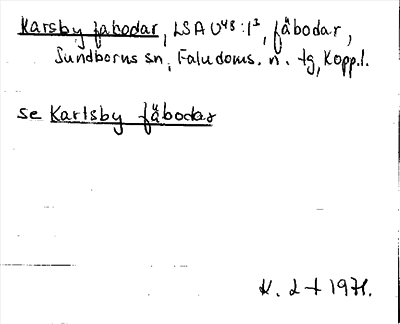 Karsby fäbodar, LSA U48:1³, fäbodar,
Sundborns sn, Faludoms. n. tg, Kopp.l.
se Karlsby fäbodar
1971.